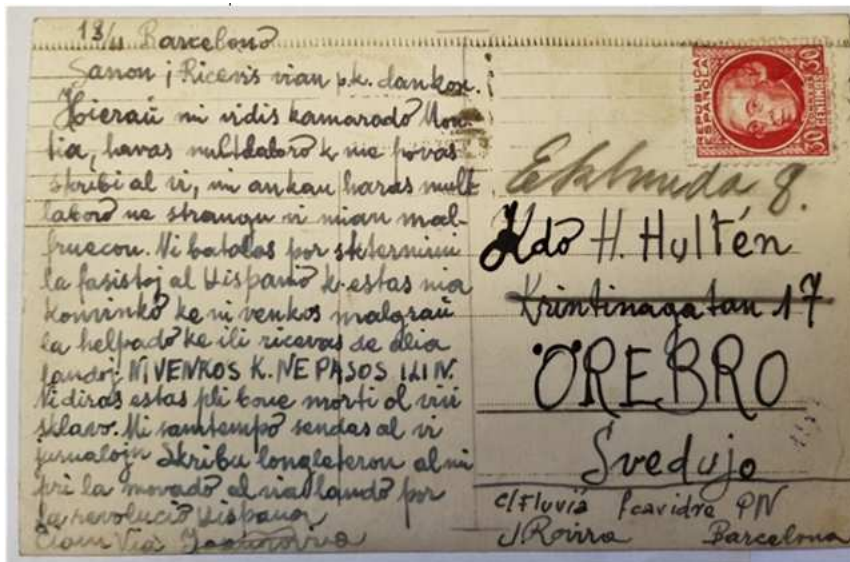 13/11 Barcelono
Sanon j Ricevis vian p.k. dankon.
Hieraŭ mi vidis kamarado Mon-
tia, havas multlaboro k ne povas
skribi al vi, mi ankau havas mult
laboro ne strangu vi mian mal-
fruecon. Ni batalas por
la fasistoj al Hispanio k estas nia
konvinko ke ni venkos malgraŭ
la helpado ke ili ricevas de alia
landoj NI VENKOS K. NE PASOS ILIN.
Ni diras estas pli bone morti ol vivi
sklavo. Mi samtempo sendas al vi
jurnalojn Skribu longleteron al mi
pri la movado al via lando por
la revolucio Hispanoj
REPUBLICA
ESPAÑOLA
30 CENTIMOS 30
8.
Kdo H. Hultén
Krintinagatan 17
ÖREBRO
Svedujo
c/Fluviá PN
J. Rovira Barcelona